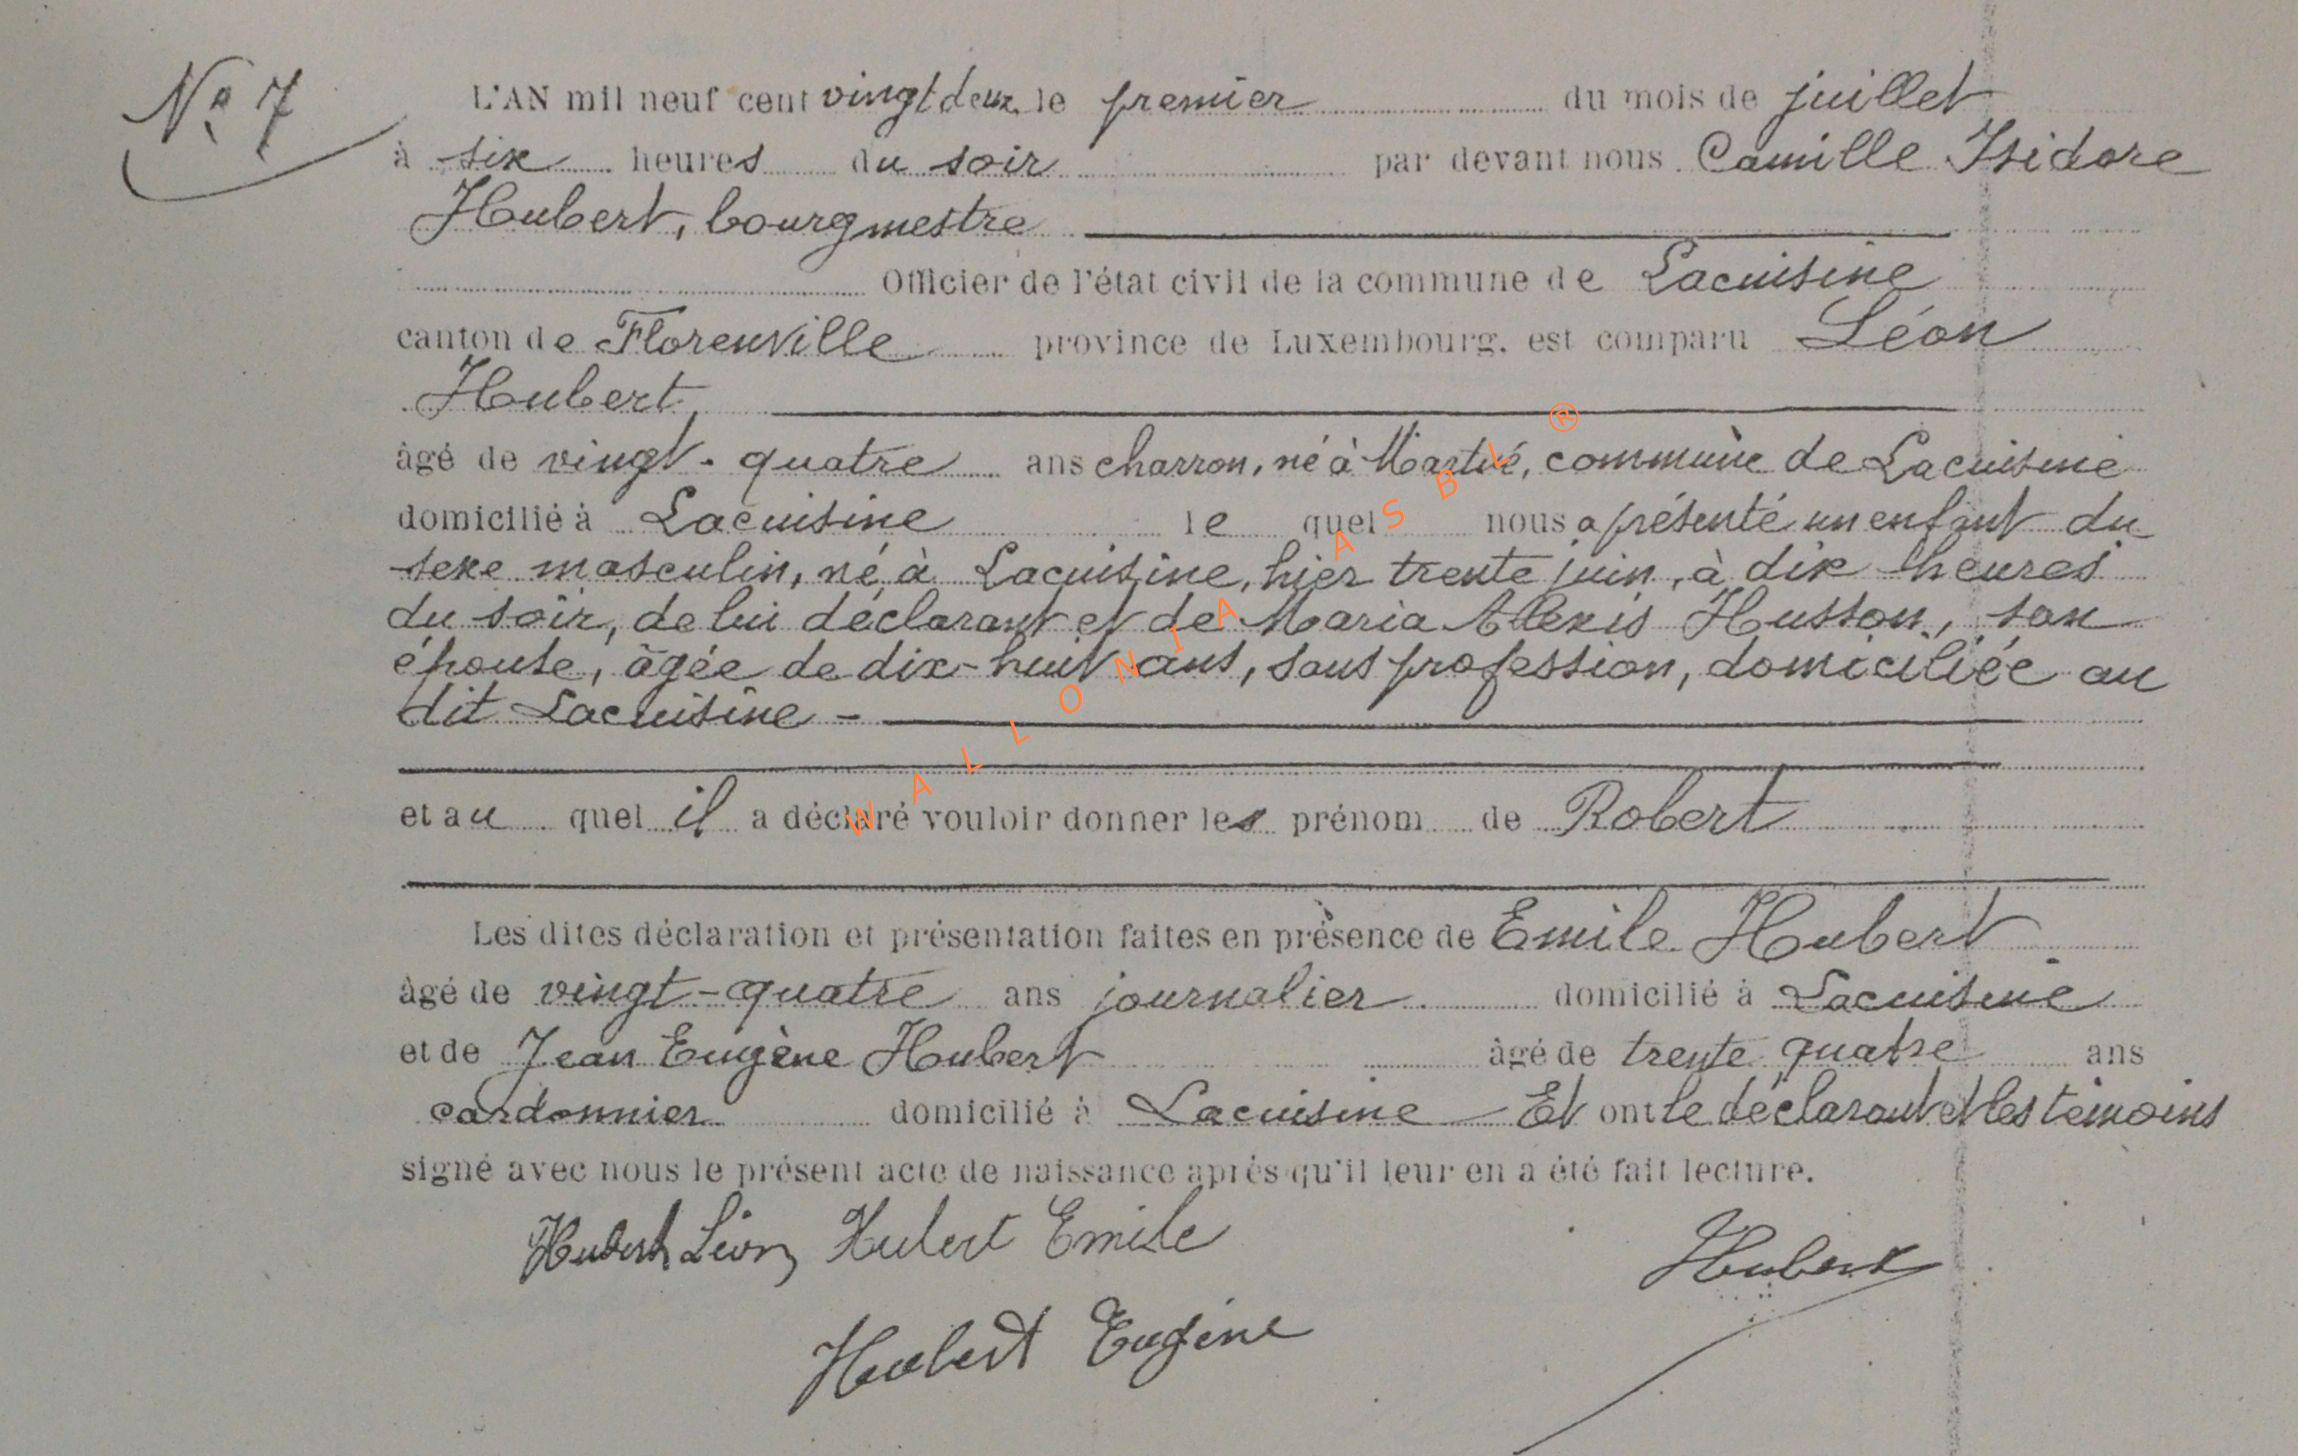 Nº 7
L'AN mil neuf cent vingt deux le premier du mois de juillet
à six heures du soir par devant nous Camille Isidore
Hubert, bourgmestre
Officier de l'état civil de la commune de Lacuisine
canton de Florenville province de Luxembourg, est comparu Léon
Hubert,
âgé de vingt-quatre ans charron, né à Martué, commune de Lacuisine
domicilié à Lacuisine le quel nous a présenté un enfant du
sexe masculin, né à Lacuisine, hier trente juin, à dix heures
du soir, de lui déclarant et de Maria Alexis Husson, son
épouse, âgée de dix-huit ans, sans profession, domiciliée au
dit Lacuisine -
et au quel il a déclaré vouloir donner les prénom de Robert
Les dites déclaration et présentation faites en présence de Emile Hubert
âgé de vingt-quatre ans journalier domicilié à Lacuisine
et de Jean Eugène Hubert âgé de trente quatre ans
cordonnier domicilié à Lacuisine Et ont le déclarant et les témoins
signé avec nous le présent acte de naissance après qu'il leur en a été fait lecture.
Hubert Léon Hubert Emile
Hubert
Hubert Eugène
WALLONIA ASBL ®